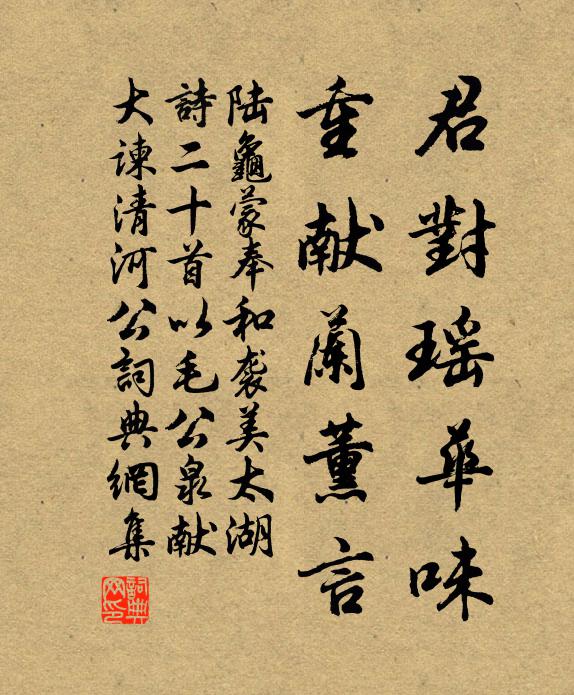 君對瑶華味
重献蘭薰言
陆龜蒙奉和袭美太湖
詩二十首以毛公泉献
大諫清河公詞典網集
詞典网印